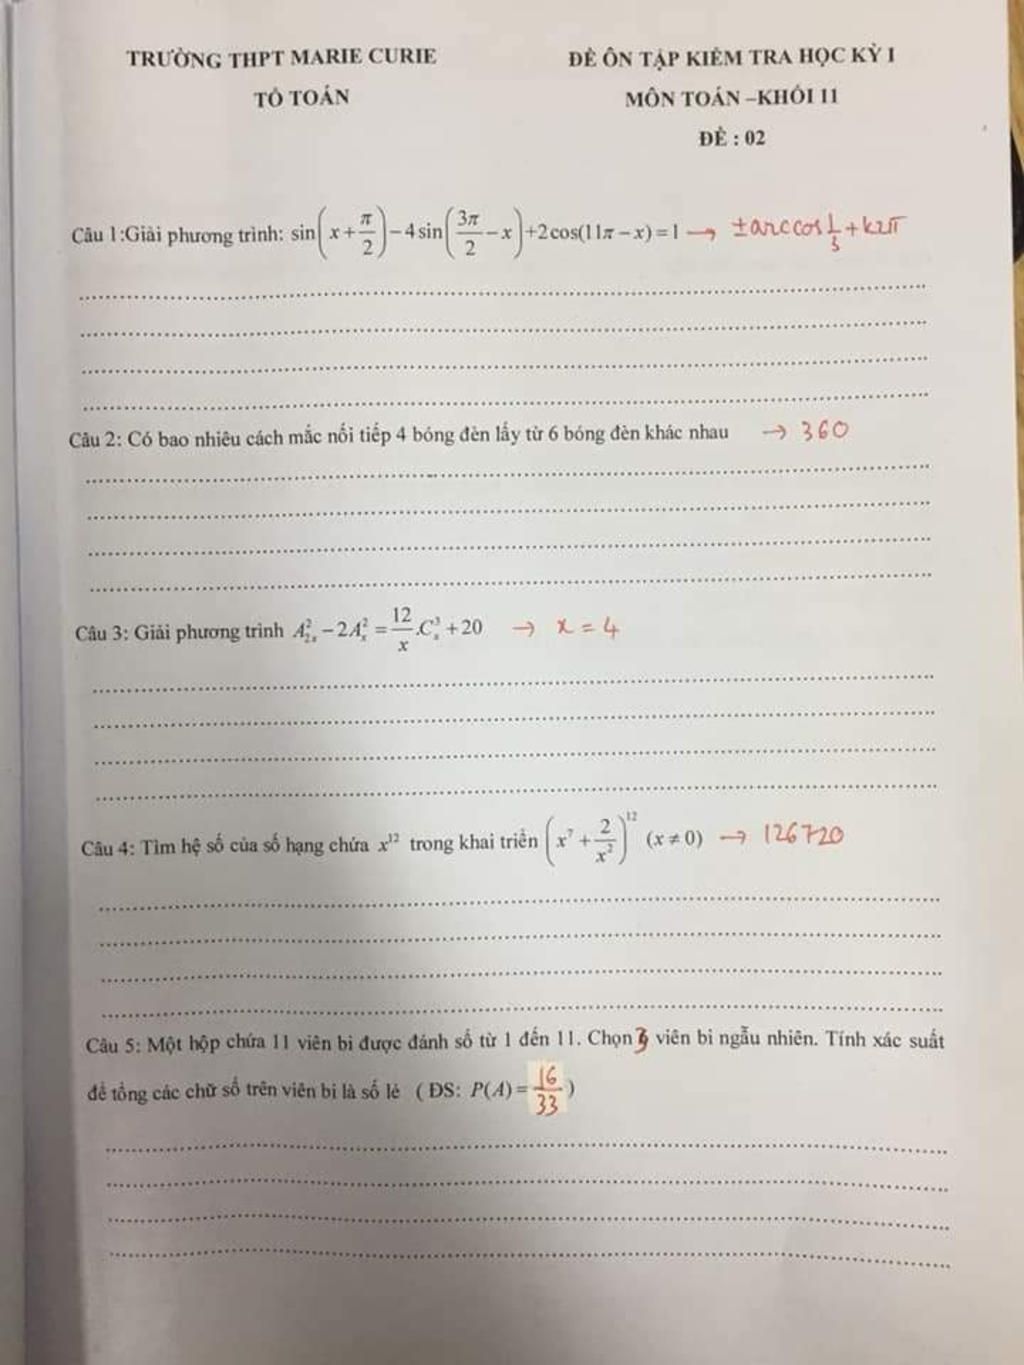 TRƯỜNG THPT MARIE CURIE
ĐỀ ÔN TẬP KIỂM TRA HỌC KỲ I
TỔ TOÁN
MÔN TOÁN –KHỐI 11
ĐỀ : 02
Câu 1:Giải phương trình: sin(x + π/2) − 4 sin(3π/2 − x) + 2cos(11π − x) = 1 → ± arccos 1/3 + k2π
Câu 2: Có bao nhiêu cách mắc nối tiếp 4 bóng đèn lấy từ 6 bóng đèn khác nhau → 360
Câu 3: Giải phương trình A²₂ₓ − 2A²ₓ = 12/x .C³ₓ + 20 → x = 4
Câu 4: Tìm hệ số của số hạng chứa x¹² trong khai triển (x⁷ + 2/x²)¹² (x ≠ 0) → 126720
Câu 5: Một hộp chứa 11 viên bi được đánh số từ 1 đến 11. Chọn 3 viên bi ngẫu nhiên. Tính xác suất
để tổng các chữ số trên viên bi là số lẻ ( ĐS: P(A) = 16/33 )